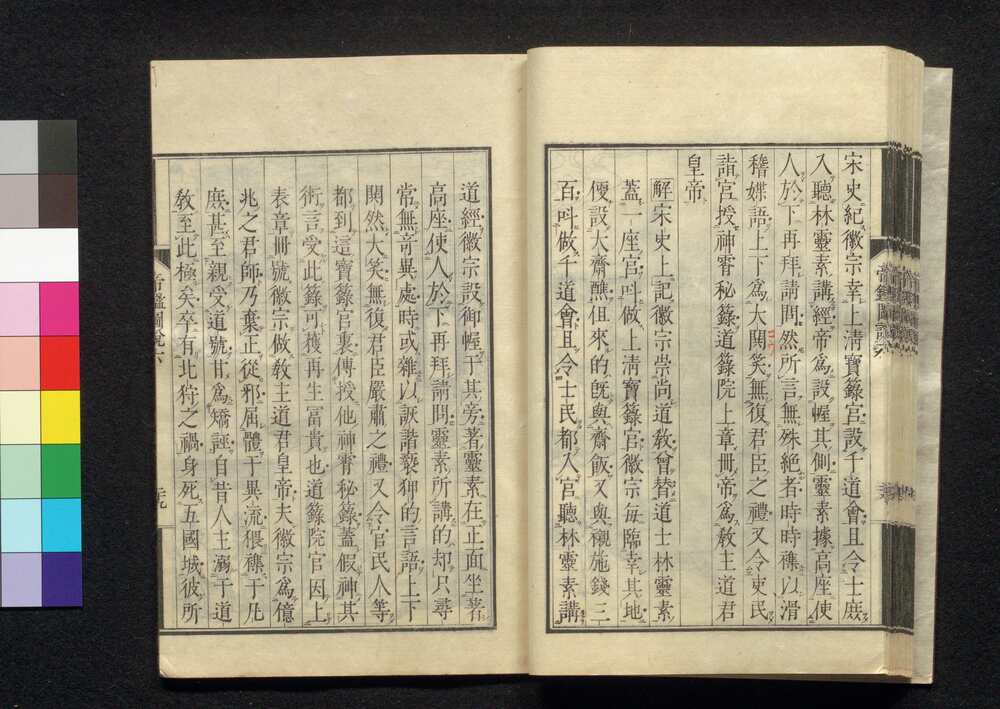 宋史紀徽宗幸上淸寶籙宮設千道會且令士庶
入聽林靈素講經帝爲設幄其側靈素據高座使
人於下再拜請問然所言無殊絶者時時襍以滑
稽媟語上下爲大閧笑無復君臣之禮又令吏民
詣宮授神霄秘籙道籙院上章冊帝爲敎主道君
皇帝
解宋史上記徽宗崇尚道敎曾替道士林靈素
蓋一座宮呌做上淸寶籙宮徽宗每臨幸其地
便設大齋醮但來的旣與齋飯又與襯施錢三
百呌做千道會且令士民都入宮聽林靈素講
道經徽宗設御幄于其旁著靈素在正面坐著
高座使人於下再拜請問靈素所講的却只尋
常無竒異處時或雜以詼諧褻狎的言語上下
閧然大笑無復君臣嚴肅之禮又令官民人等
都到這寶籙宮裏傳授他神霄秘籙蓋假神其
術言受此籙可獲再生富貴也道籙院官因上
表章冊號徽宗做敎主道君皇帝夫徽宗爲億
兆之君師乃棄正從邪屈體于異流猥襍于凡
庶甚至親受道號甘爲矯誣自昔人主溺于道
敎至此極矣卒有北狩之禍身死五國城彼所
帝鑑圖說六